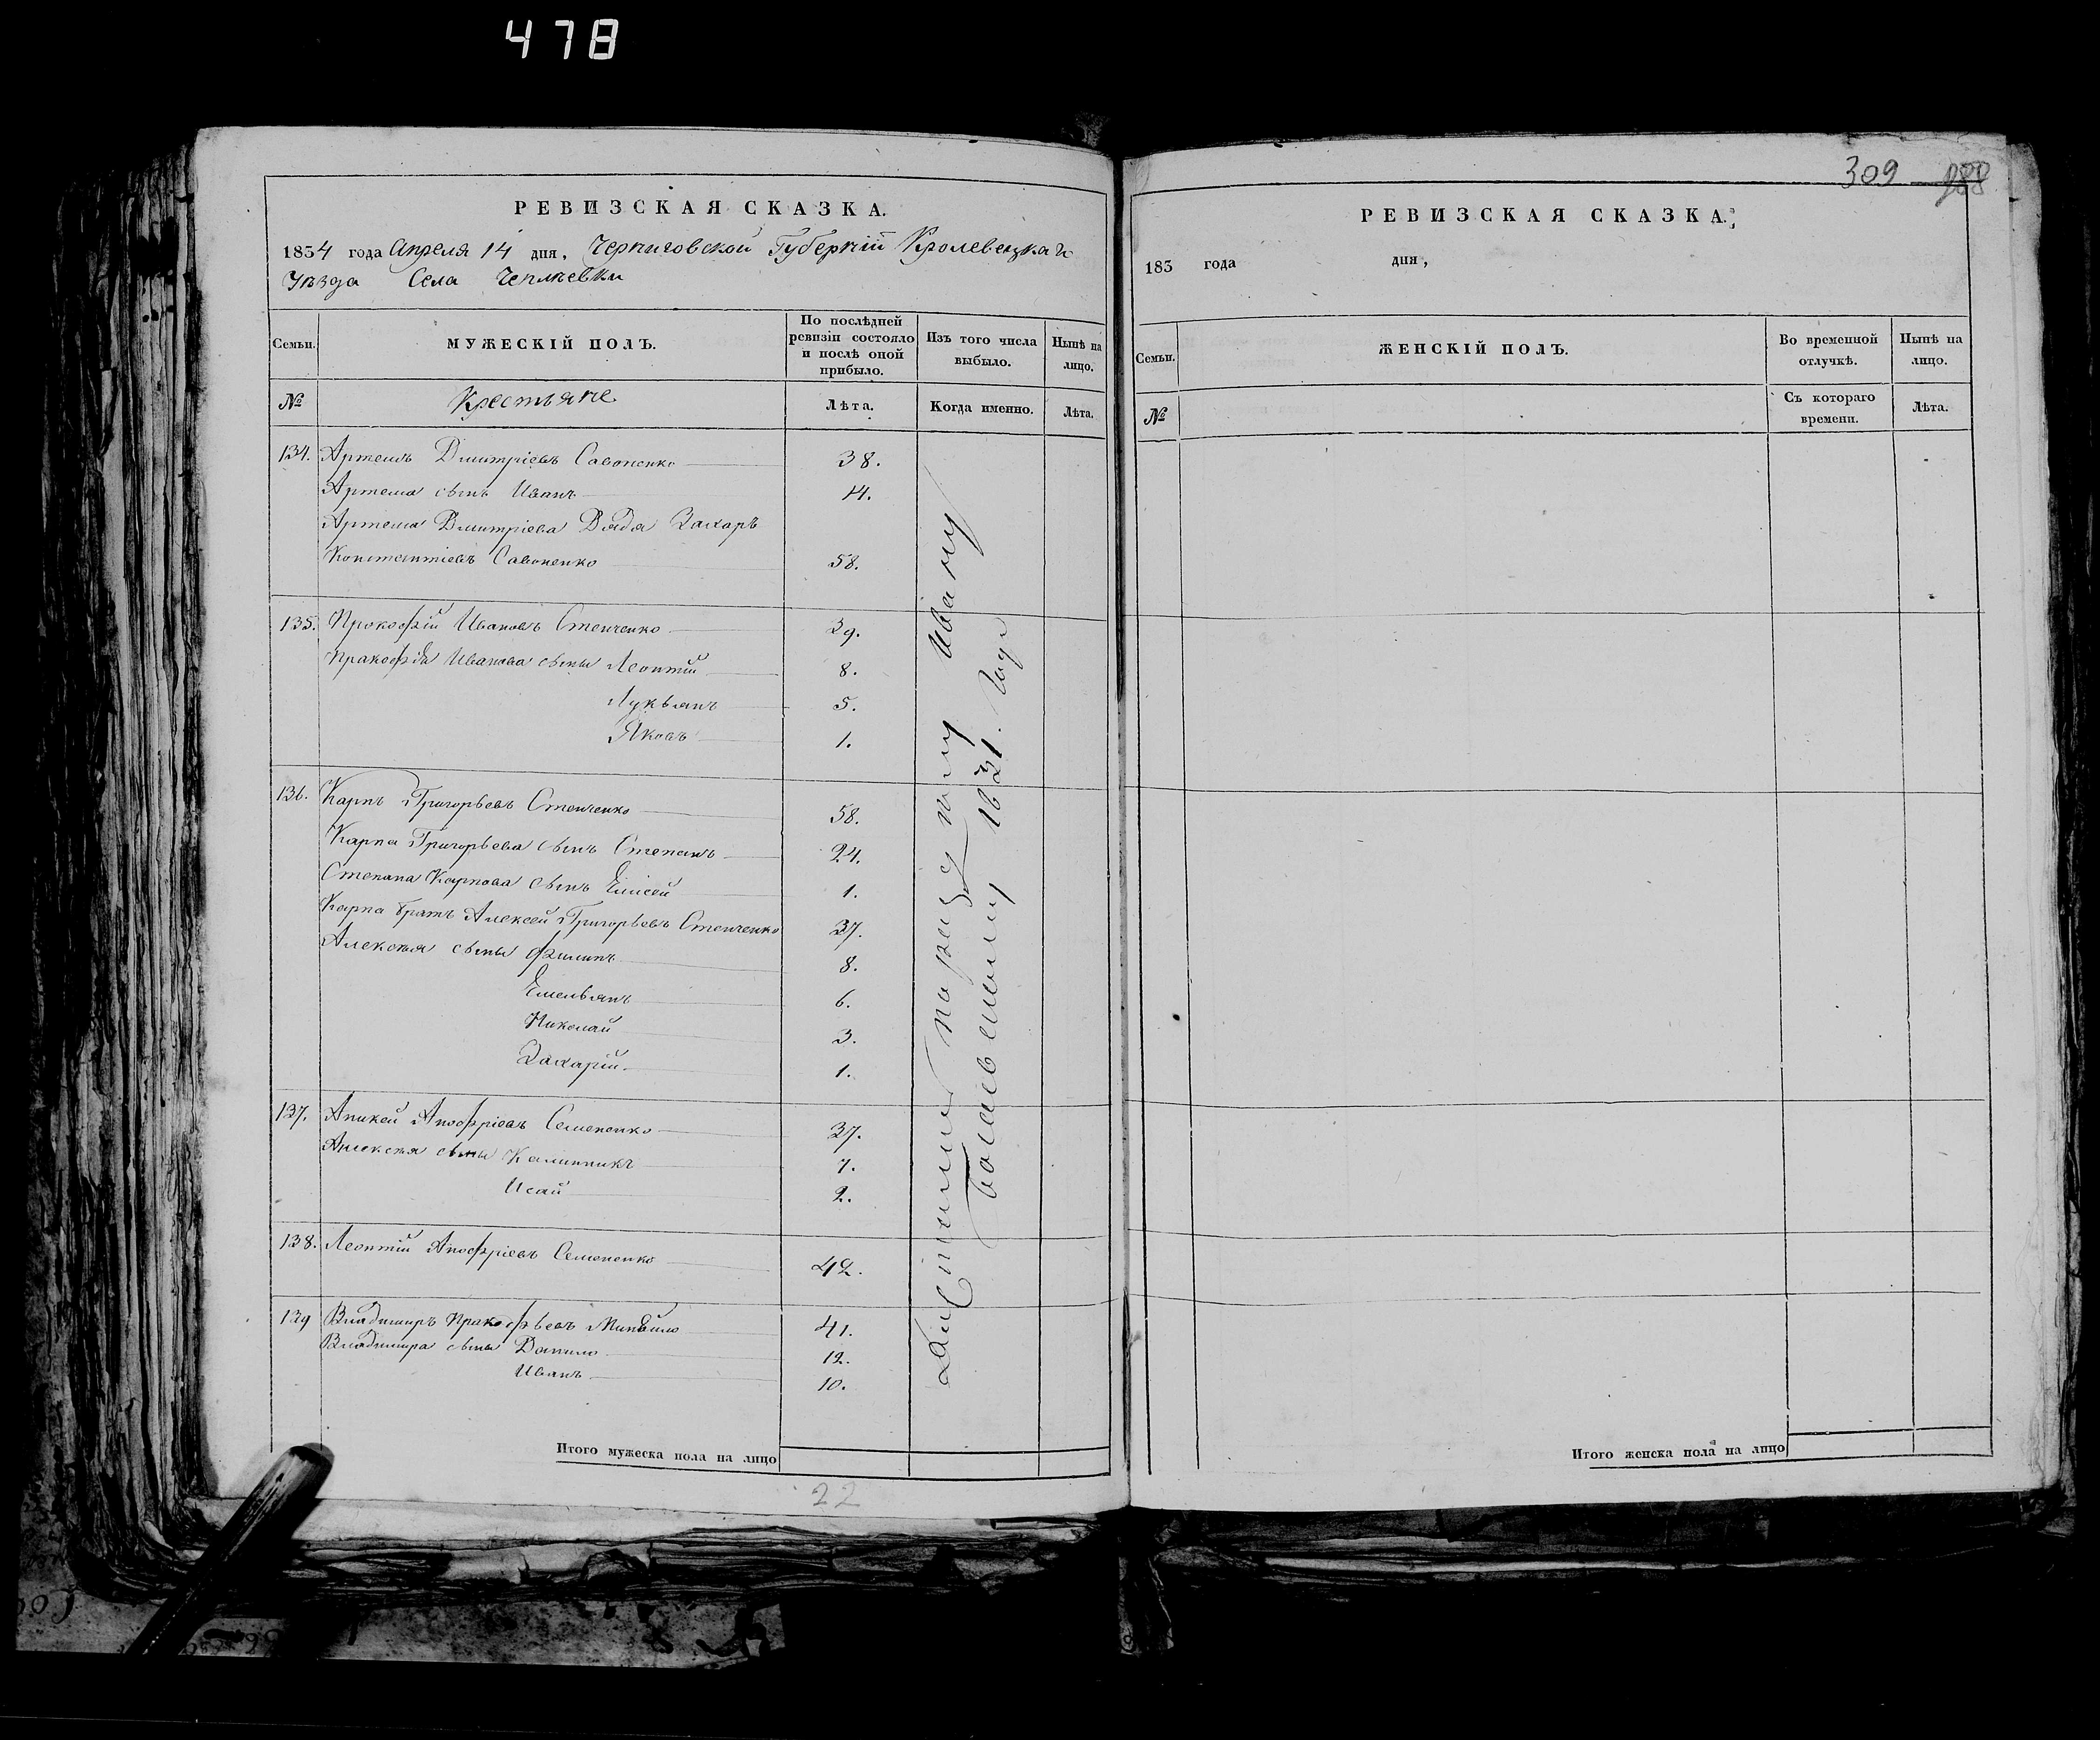 478
РЕВИЗСКАЯ СКАЗКА.
1834 года Апреля 14 дня, Черниговской Губерніи Кролевецкаго
Уѣзда Села Чеплѣевки
Семьи.
МУЖЕСКІЙ ПОЛЪ.
По послѣдней ревизіи состояло и послѣ оной прибыло.
Изъ того числа выбыло.
Нынѣ на лицо.
№
Крестьяне
Лѣта.
Когда именно.
Лѣта.
134. Артемъ Дмитріевъ Савоненко 38.
Артема сынъ Иванъ 14.
Артема Дмитріева Дядя Захаръ
Константіевъ Савоненко 58.
135. Прокофій Ивановъ Стенченко 39.
Пракофія Иванова сыны Леонтій 8.
Лукьянъ 5.
Яковъ 1.
136. Карпъ Григорьевъ Стенченко 58.
Карпа Григорьева сынъ Степанъ 24.
Степана Карпова сынъ Елисей 1.
Карпа братъ Алексей Григорьевъ Стенченко 37.
Алексея сыны Филипъ 8.
Емельянъ 6.
Николай 3.
Захарій 1.
137. Аникей Анофріевъ Семененко 37.
Алексея сыны Калинникъ 7.
Исай 2.
138. Леонтій Анофріевъ Семененко 42.
139 Владимиръ Пракофьевъ 41.
Владимира сыны Данило 12.
Иванъ 10.
Ивану
1821. года
Итого мужеска пола на лицо
22
309
РЕВИЗСКАЯ СКАЗКА.
183 года дня,
Семьи.
ЖЕНСКІЙ ПОЛЪ.
Во временной отлучкѣ.
Нынѣ на лицо.
№
Съ котораго времени.
Лѣта.
Итого женска пола на лицо